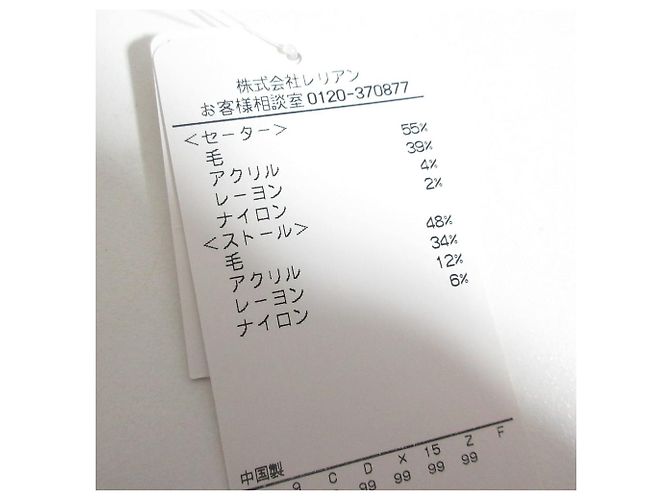 株式会社レリアン
お客様相談室0120-370877
<セーター>
毛 55%
アクリル 39%
レーヨン 4%
ナイロン 2%
<ストール>
毛 48%
アクリル 34%
レーヨン 12%
ナイロン 6%
中国製
9 C D X 15 Z F
99 99 99 99